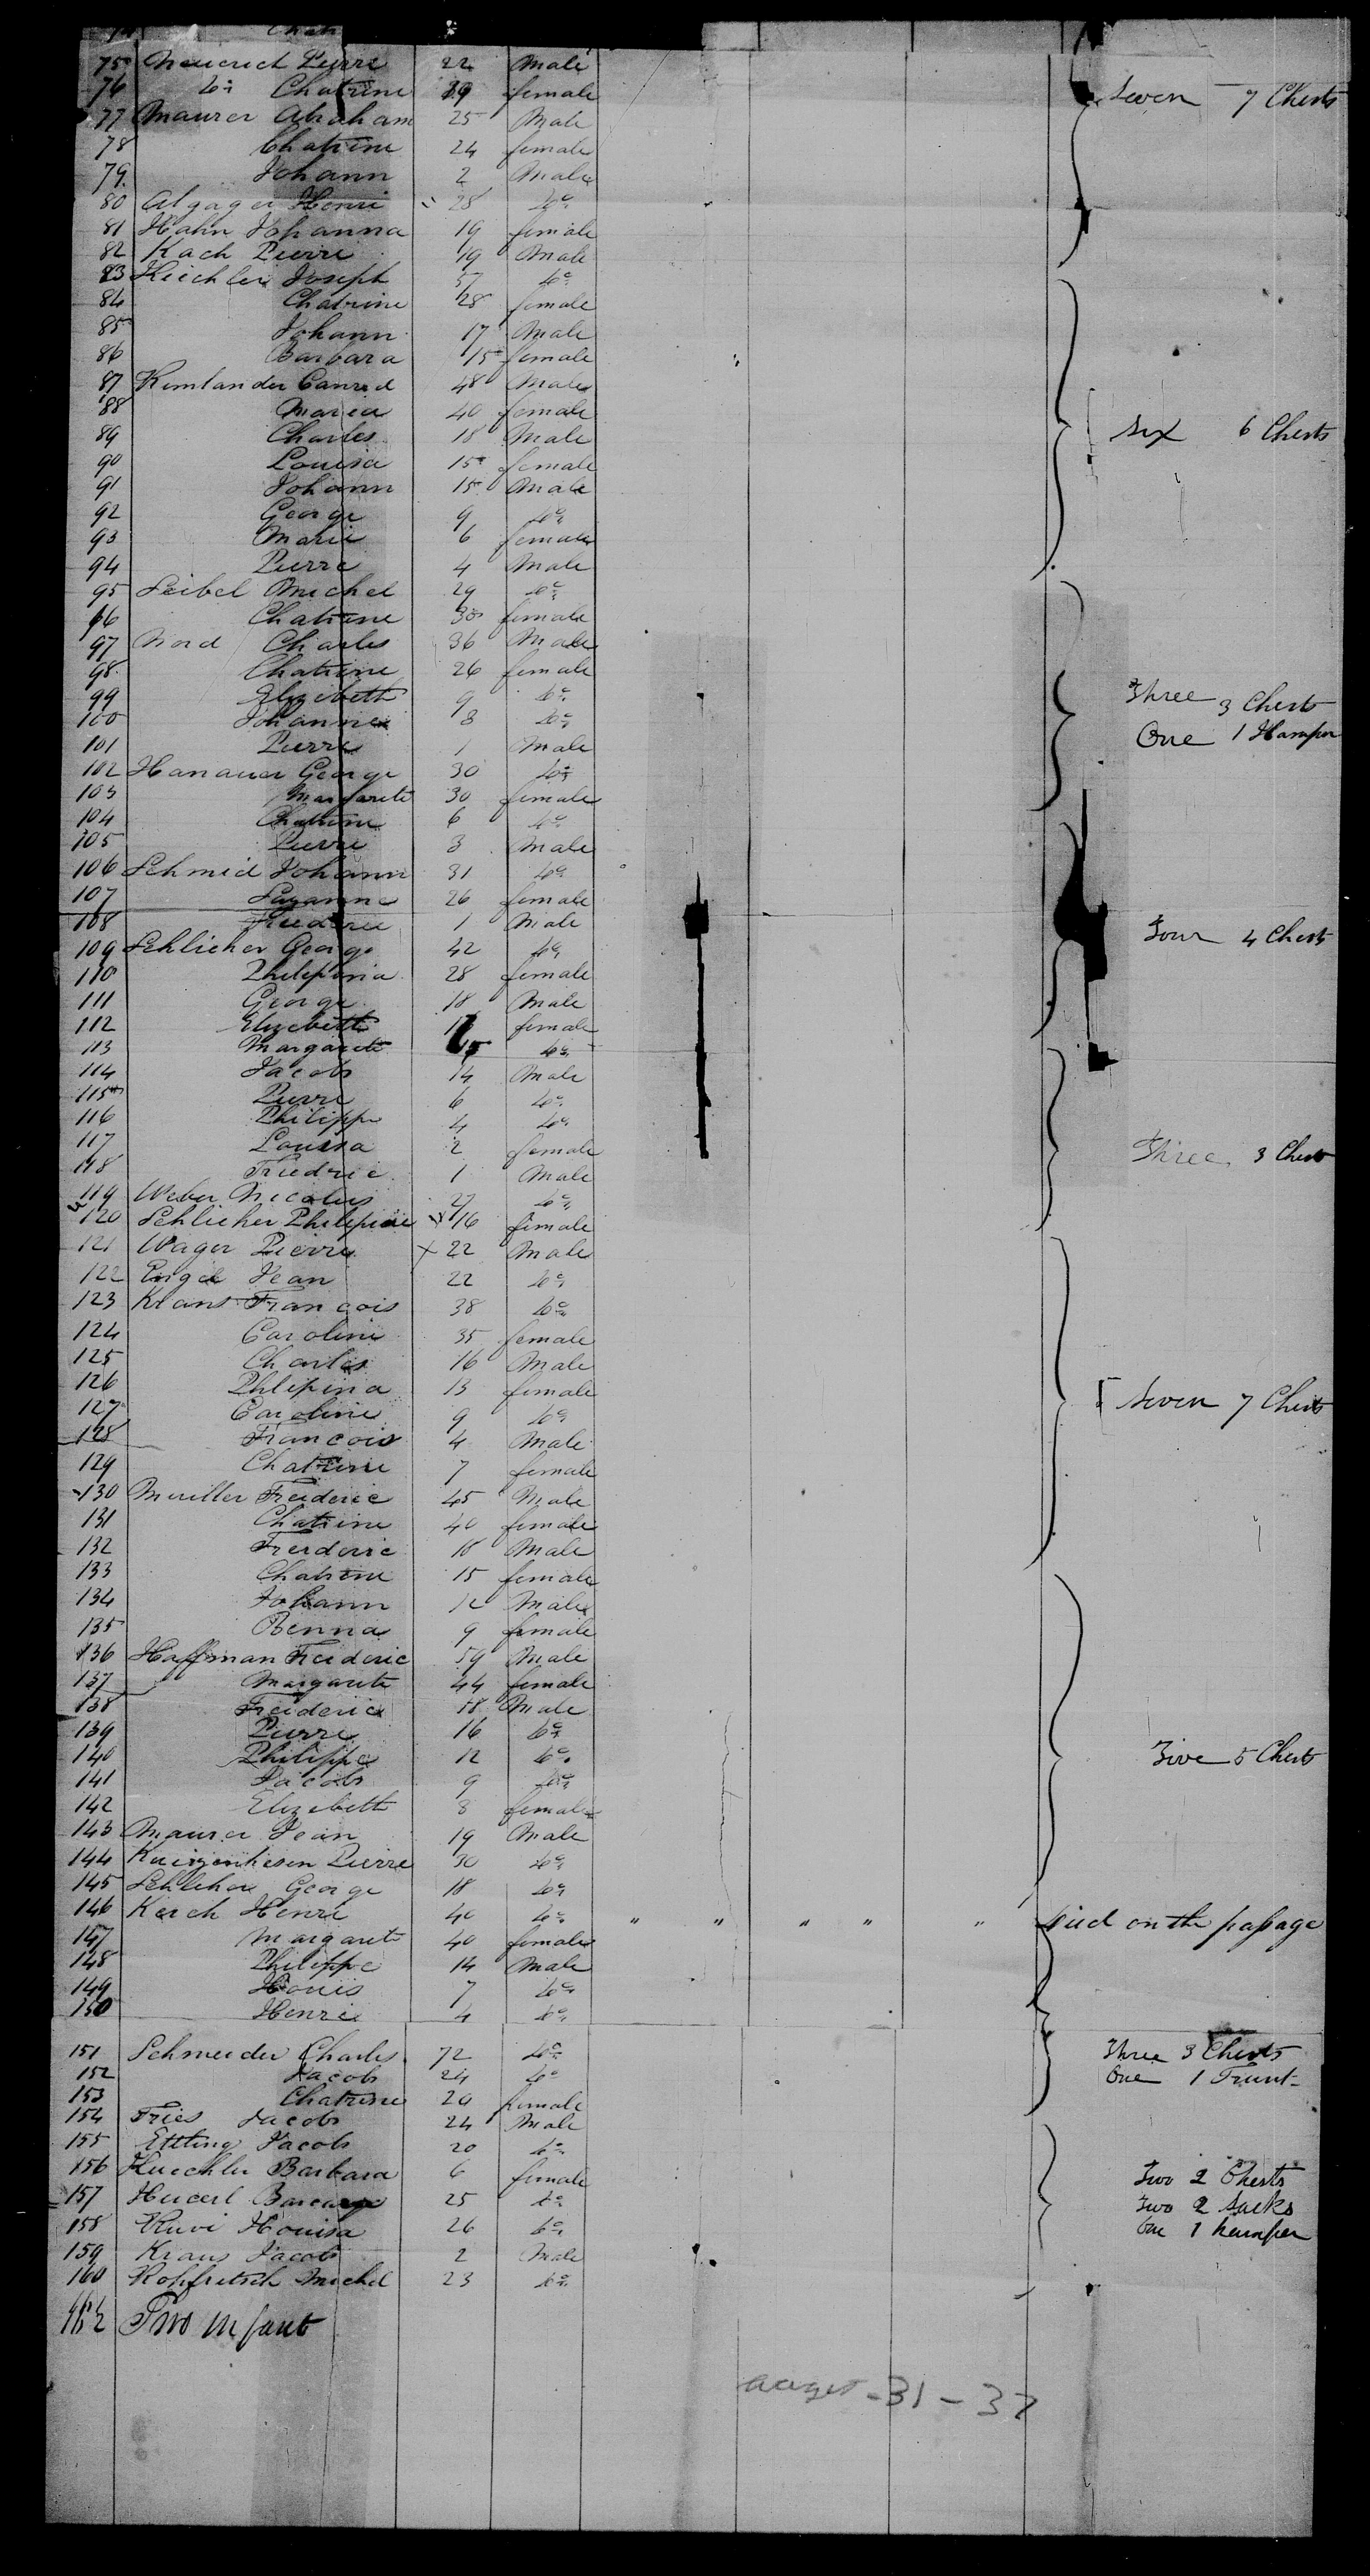 Chat
75 Neuerect Pierre 22 Male
76 do Chatrine 39 female Seven 7 Chests
77 Maurer Abraham 25 Male
78 Chatrine 24 female
79 Johann 2 Male
80 Algager Henri 28 do
81 Hahn Johanna 19 female
82 Kach Pierre 19 Male
83 Kiechler Joseph 57 do
84 Chatrine 28 female
85 Johann 17 Male
86 Barbara 15 female
87 Kemlander Conrad 48 Male
88 Maria 40 female
89 Charles 18 Male Six 6 Chests
90 Louisa 15 female
91 Johann 15 Male
92 George 9 do
93 Marie 6 female
94 Pierre 4 Male
95 Seibel Michel 29 do
96 Chatrine 30 female
97 Nord Charles 36 Male
98 Chatrine 26 female
99 Elyzebeth 9 do Three 3 Chests
100 Johanna 8 do One 1 Hamper
101 Pierre 1 Male
102 Hanauer George 30 do
103 Margarete 30 female
104 Chatrine 6 do
105 Pierre 3 Male
106 Schmid Johann 31 do
107 Suzanne 26 female
108 Friederic 1 Male
109 Schlicher George 42 do Four 4 Chests
110 Philepina 28 female
111 George 18 Male
112 Elyzebeth female
113 Margarete do
114 Jacob 14 Male
115 Pierre 6 do
116 Philippe 4 do
117 Louisa 2 female Three 3 Chests
118 Friedric 1 Male
119 Weber Nicolas 27 do
120 Schlicher Philepine 16 female
121 Wager Pierre 22 Male
122 Engel Jean 22 do
123 Krans François 38 do
124 Caroline 35 female
125 Charles 16 Male
126 Phlipina 13 female
127 Caroline 9 do Seven 7 Chests
128 Francois 4 Male
129 Chatrine 7 female
130 Mueller Freideric 45 Male
131 Chatrine 40 female
132 Freideric 18 Male
133 Chatrine 15 female
134 Johann 12 Male
135 Benna 9 female
136 Haffman Freideric 59 Male
137 Margarete 44 female
138 Freideric 18 Male
139 Pierre 16 do
140 Philippe 12 do Five 5 Chests
141 Jacob 9 do
142 Elyzebeth 8 female
143 Maurer Jean 19 Male
144 Kuizenhesen Pierre 30 do
145 Schlicher George 18 do
146 Kerch Henri 40 do " " " " " died on the passage
147 Margarete 40 female
148 Philippe 14 Male
149 Houis 7 do
150 Henri 4 do
151 Schneider Charles 72 do Three 3 Chests
152 Jacob 24 do One 1 Trunk
153 Chatrine 20 female
154 Fries Jacob 24 Male
155 Ettling Jacob 20 do
156 Kuechler Barbara 6 female Two 2 Chests
157 Heicerl 25 do Two 2 Sacks
158 Kuvi Houisa 26 do One 1 hamper
159 Kraus Jacob 2 Male
160 Rohfritsch Michel 23 do
162 Two infants
august - 31 - 37